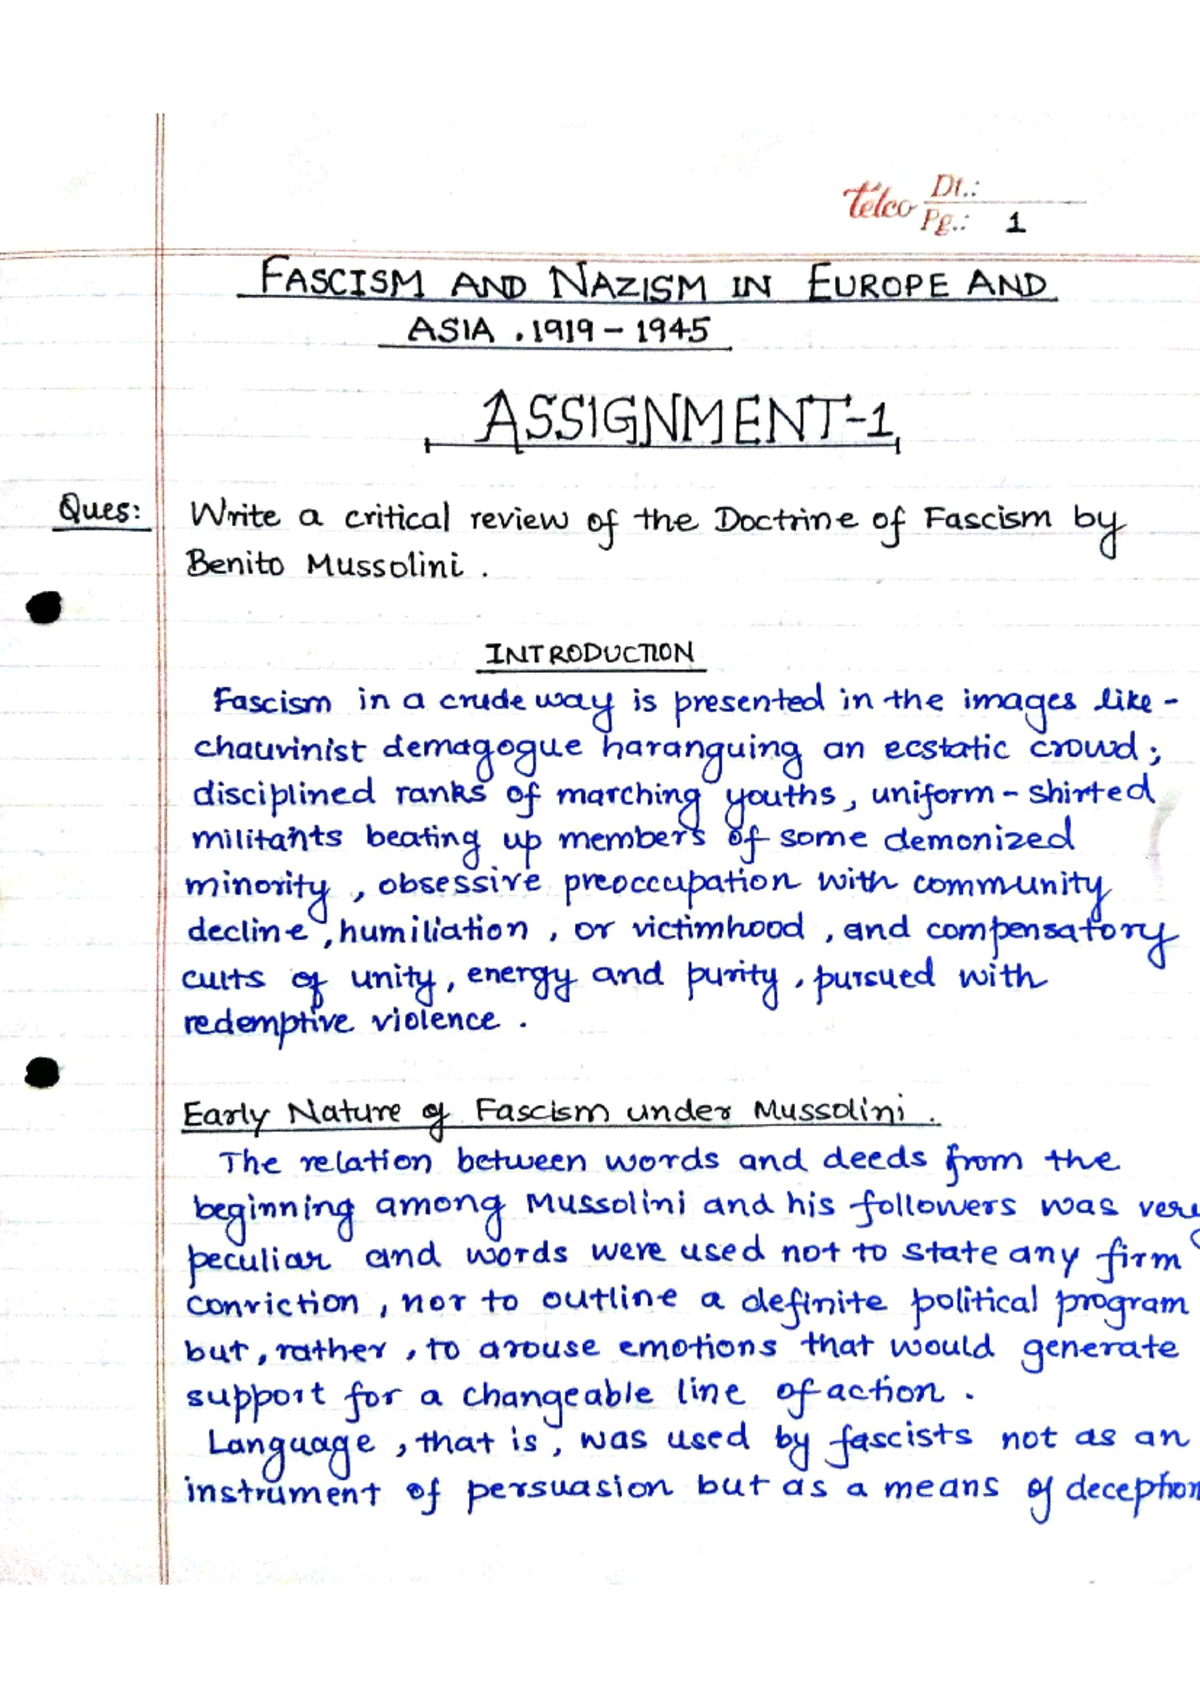 telco Dt.:
Pg.: 1
FASCISM AND NAZISM IN EUROPE AND
ASIA . 1919 - 1945
ASSIGNMENT-1
Ques: Write a critical review of the Doctrine of Fascism by
Benito Mussolini .
INTRODUCTION
Fascism in a crude way is presented in the images like -
chauvinist demagogue haranguing an ecstatic crowd ;
disciplined ranks of marching youths , uniform - shirted
militants beating up members of some demonized
minority , obsessive preoccupation with community
decline , humiliation , or victimhood , and compensatory
cults of unity , energy and purity , pursued with
redemptive violence .
Early Nature of Fascism under Mussolini .
The relation between words and deeds from the
beginning among Mussolini and his followers was very
peculiar and words were used not to state any firm
conviction , nor to outline a definite political program
but , rather , to arouse emotions that would generate
support for a changeable line of action .
Language , that is , was used by fascists not as an
instrument of persuasion but as a means of deception